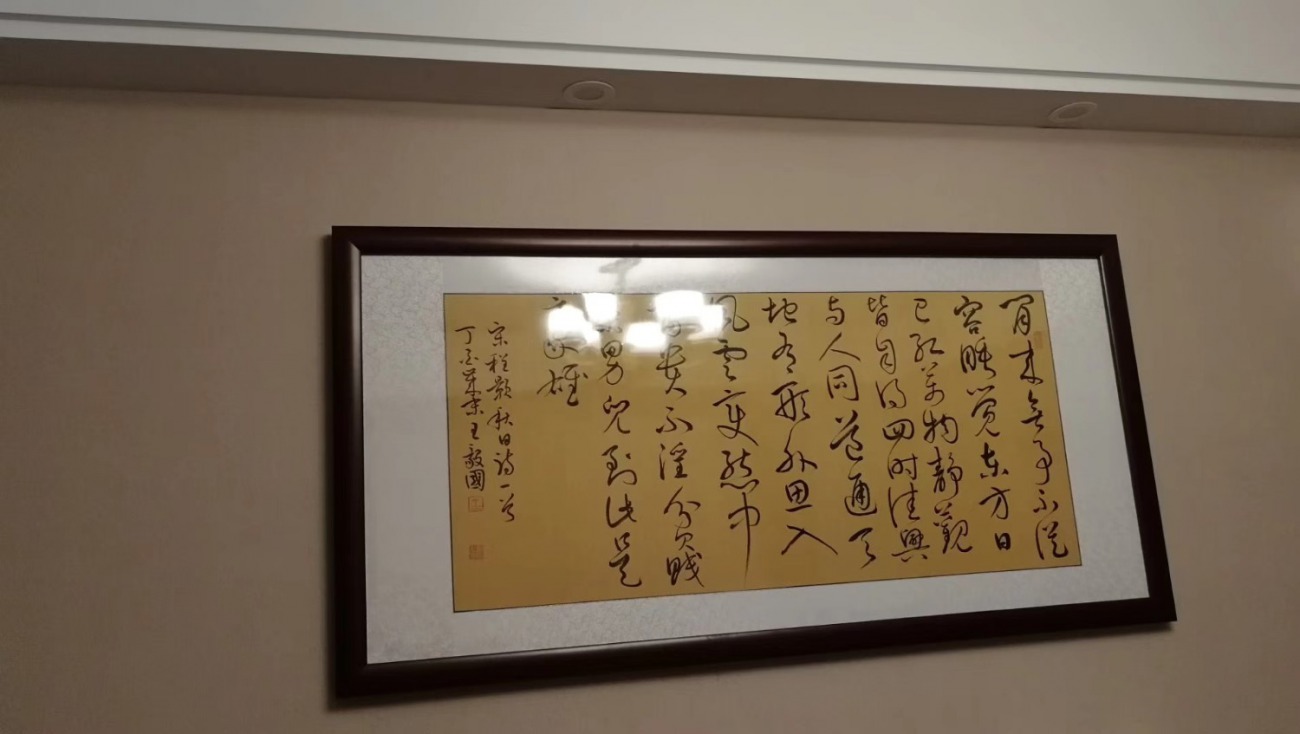 閒来無事不從
容睡覺东方日
已红萬物靜觀
皆自得四时佳興
与人同道通天
地有形外思入
風雲變態中
貴不淫貧賤
男兒到此是
豪雄
宋程颢秋日詩一首
丁酉歲末王毅國